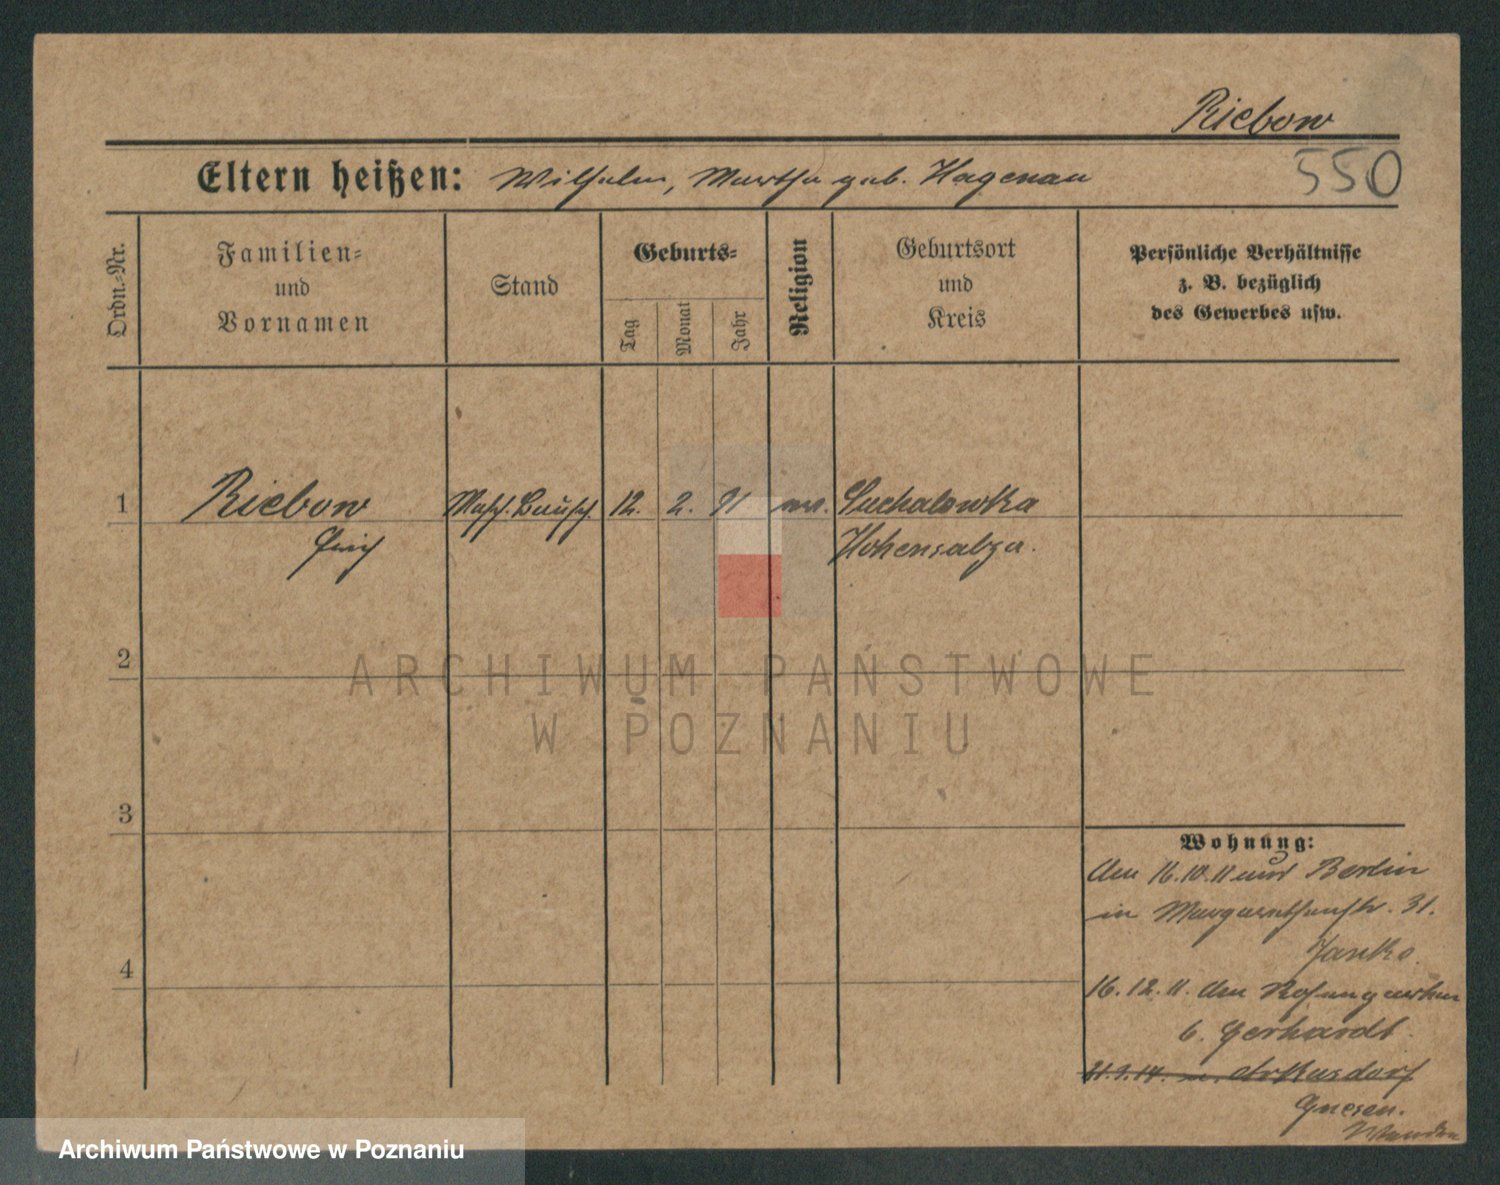 Riebow
550
Eltern heißen: Wilhelm, Martha geb. Hagenau
Ordn.-Nr.
Familien-
und
Vornamen
Stand
Geburts-
Tag
Monat
Jahr
Religion
Geburtsort
und
Kreis
Persönliche Verhältnisse
z. B. bezüglich
des Gewerbes usw.
1 Riebow Masch. Bausch. 12. 2. 91 Suchalowka
Erich Hohensalza.
2
3
4
Wohnung:
16.10.11 Berlin
in Margarethenstr. 31.
Janko.
16.12.11. Rosengarten
6. Gerhardt.
21.9.14. n. Arkusdorf
Gnesen.
ARCHIWUM PAŃSTWOWE
W POZNANIU
Archiwum Państwowe w Poznaniu